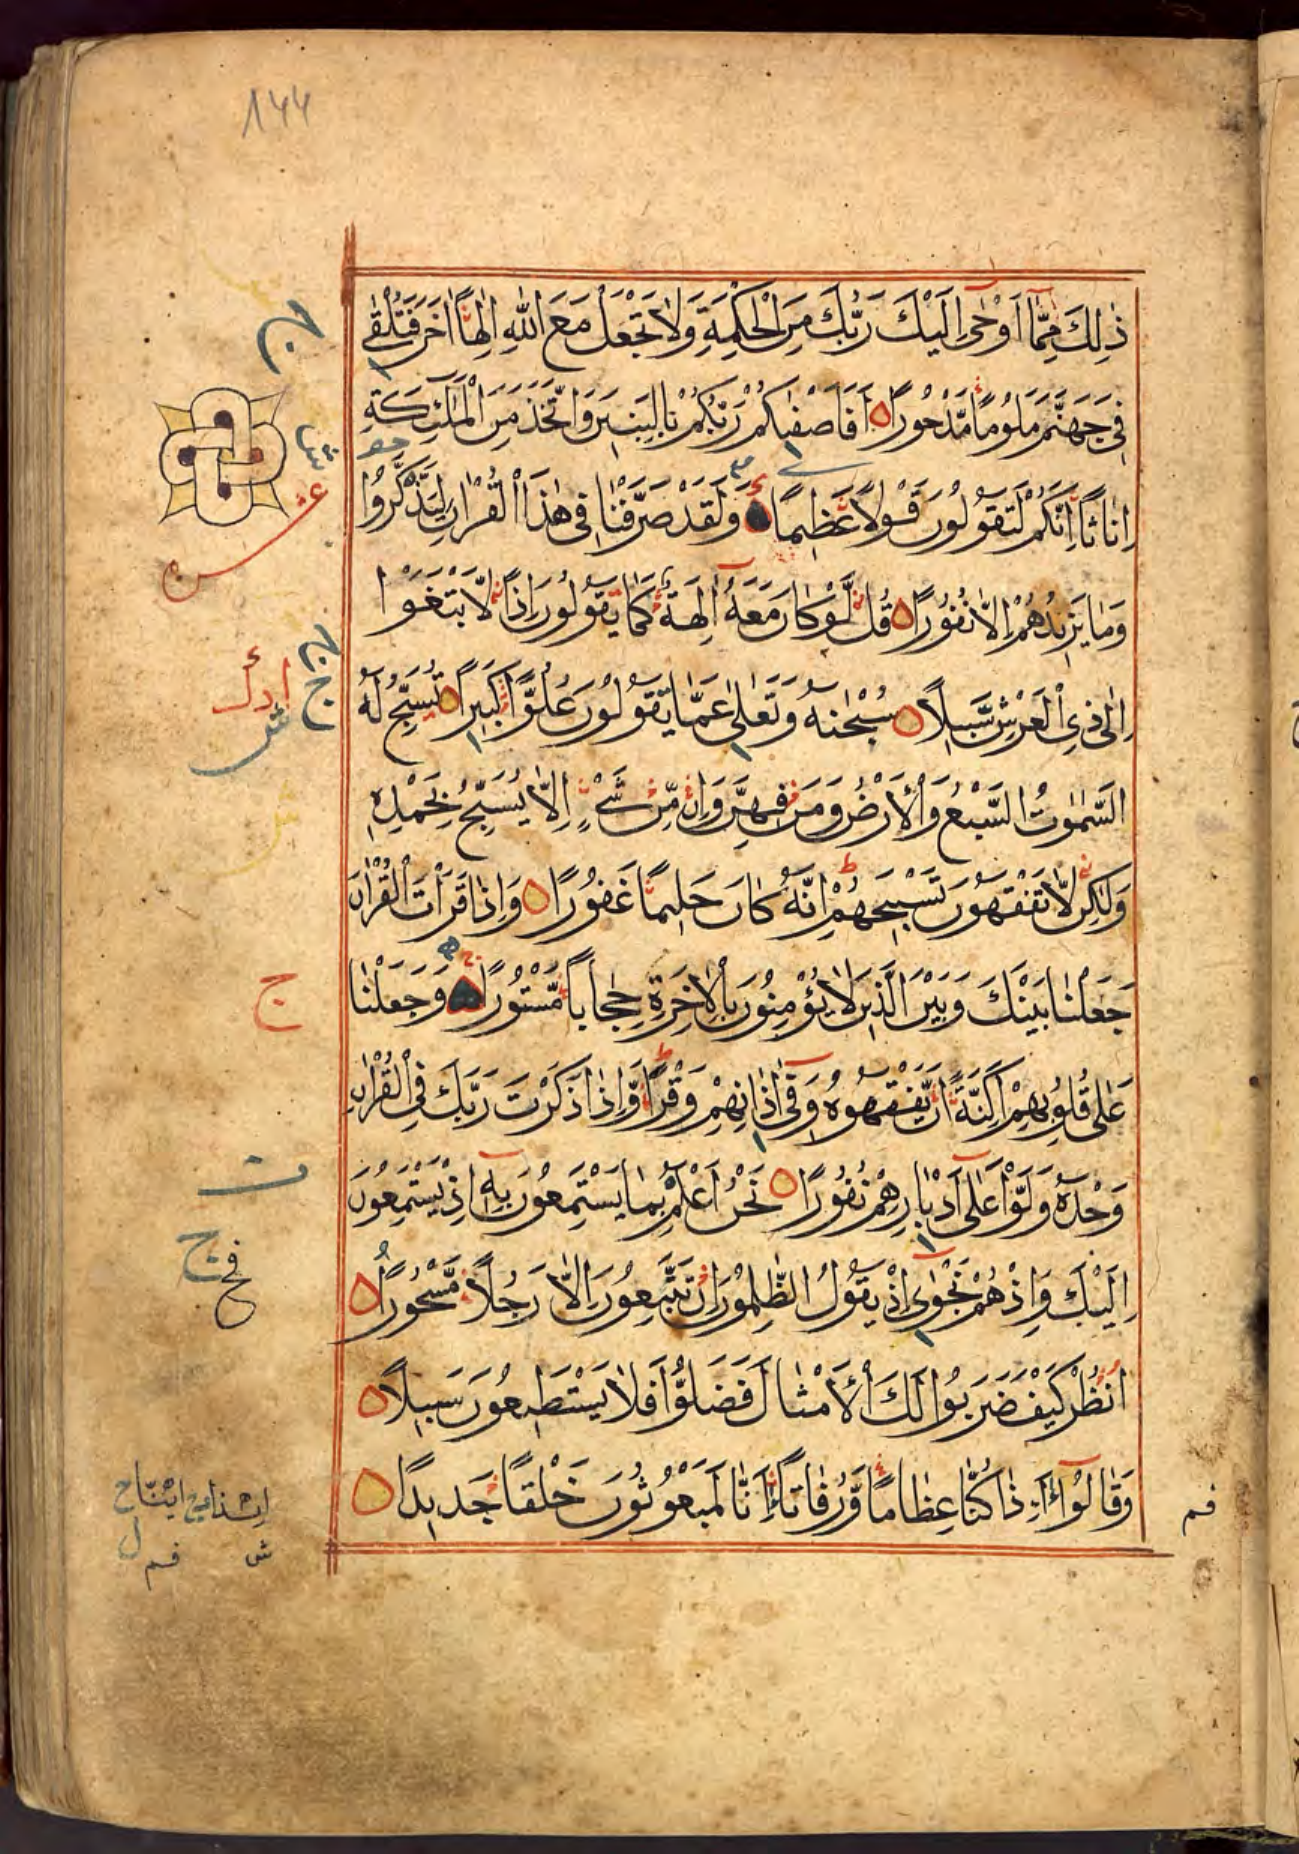 144
ذٰلِكَ مِمَّا اَوْحٰى اِلَيْكَ رَبُّكَ مِنَ الْحِكْمَةِ وَلَا تَجْعَلْ مَعَ اللّٰهِ اِلٰهًا اٰخَرَ فَتُلْقٰى
فِى جَهَنَّمَ مَلُومًا مَّدْحُورًا اَفَاَصْفٰىكُمْ رَبُّكُمْ بِالْبَنِينَ وَاتَّخَذَ مِنَ الْمَلٰٓئِكَةِ
اِنَاثًا اِنَّكُمْ لَتَقُولُونَ قَوْلًا عَظِيمًا وَلَقَدْ صَرَّفْنَا فِى هٰذَا الْقُرْاٰنِ لِيَذَّكَّرُوا
وَمَا يَزِيدُهُمْ اِلَّا نُفُورًا قُلْ لَّوْ كَانَ مَعَهُ اٰلِهَةٌ كَمَا يَقُولُونَ اِذًا لَّابْتَغَوْا
اِلٰى ذِى الْعَرْشِ سَبِيلًا سُبْحٰنَهُ وَتَعٰلٰى عَمَّا يَقُولُونَ عُلُوًّا كَبِيرًا تُسَبِّحُ لَهُ
السَّمٰوٰتُ السَّبْعُ وَالْاَرْضُ وَمَنْ فِيهِنَّ وَاِنْ مِّنْ شَىْءٍ اِلَّا يُسَبِّحُ بِحَمْدِهِ
وَلٰكِنْ لَّا تَفْقَهُونَ تَسْبِيحَهُمْ اِنَّهُ كَانَ حَلِيمًا غَفُورًا وَاِذَا قَرَاْتَ الْقُرْاٰنَ
جَعَلْنَا بَيْنَكَ وَبَيْنَ الَّذِينَ لَا يُؤْمِنُونَ بِالْاٰخِرَةِ حِجَابًا مَّسْتُورًا وَجَعَلْنَا
عَلٰى قُلُوبِهِمْ اَكِنَّةً اَنْ يَّفْقَهُوهُ وَفِى اٰذَانِهِمْ وَقْرًا وَّاِذَا ذَكَرْتَ رَبَّكَ فِى الْقُرْاٰنِ
وَحْدَهُ وَلَّوْا عَلٰى اَدْبَارِهِمْ نُفُورًا نَحْنُ اَعْلَمُ بِمَا يَسْتَمِعُونَ بِهِ اِذْ يَسْتَمِعُونَ
اِلَيْكَ وَاِذْ هُمْ نَجْوٰى اِذْ يَقُولُ الظّٰلِمُونَ اِنْ تَتَّبِعُونَ اِلَّا رَجُلًا مَّسْحُورًا
اُنْظُرْ كَيْفَ ضَرَبُوا لَكَ الْاَمْثَالَ فَضَلُّوا فَلَا يَسْتَطِيعُونَ سَبِيلًا
وَقَالُوا ءَاِذَا كُنَّا عِظَامًا وَّرُفَاتًا ءَاِنَّا لَمَبْعُوثُونَ خَلْقًا جَدِيدًا